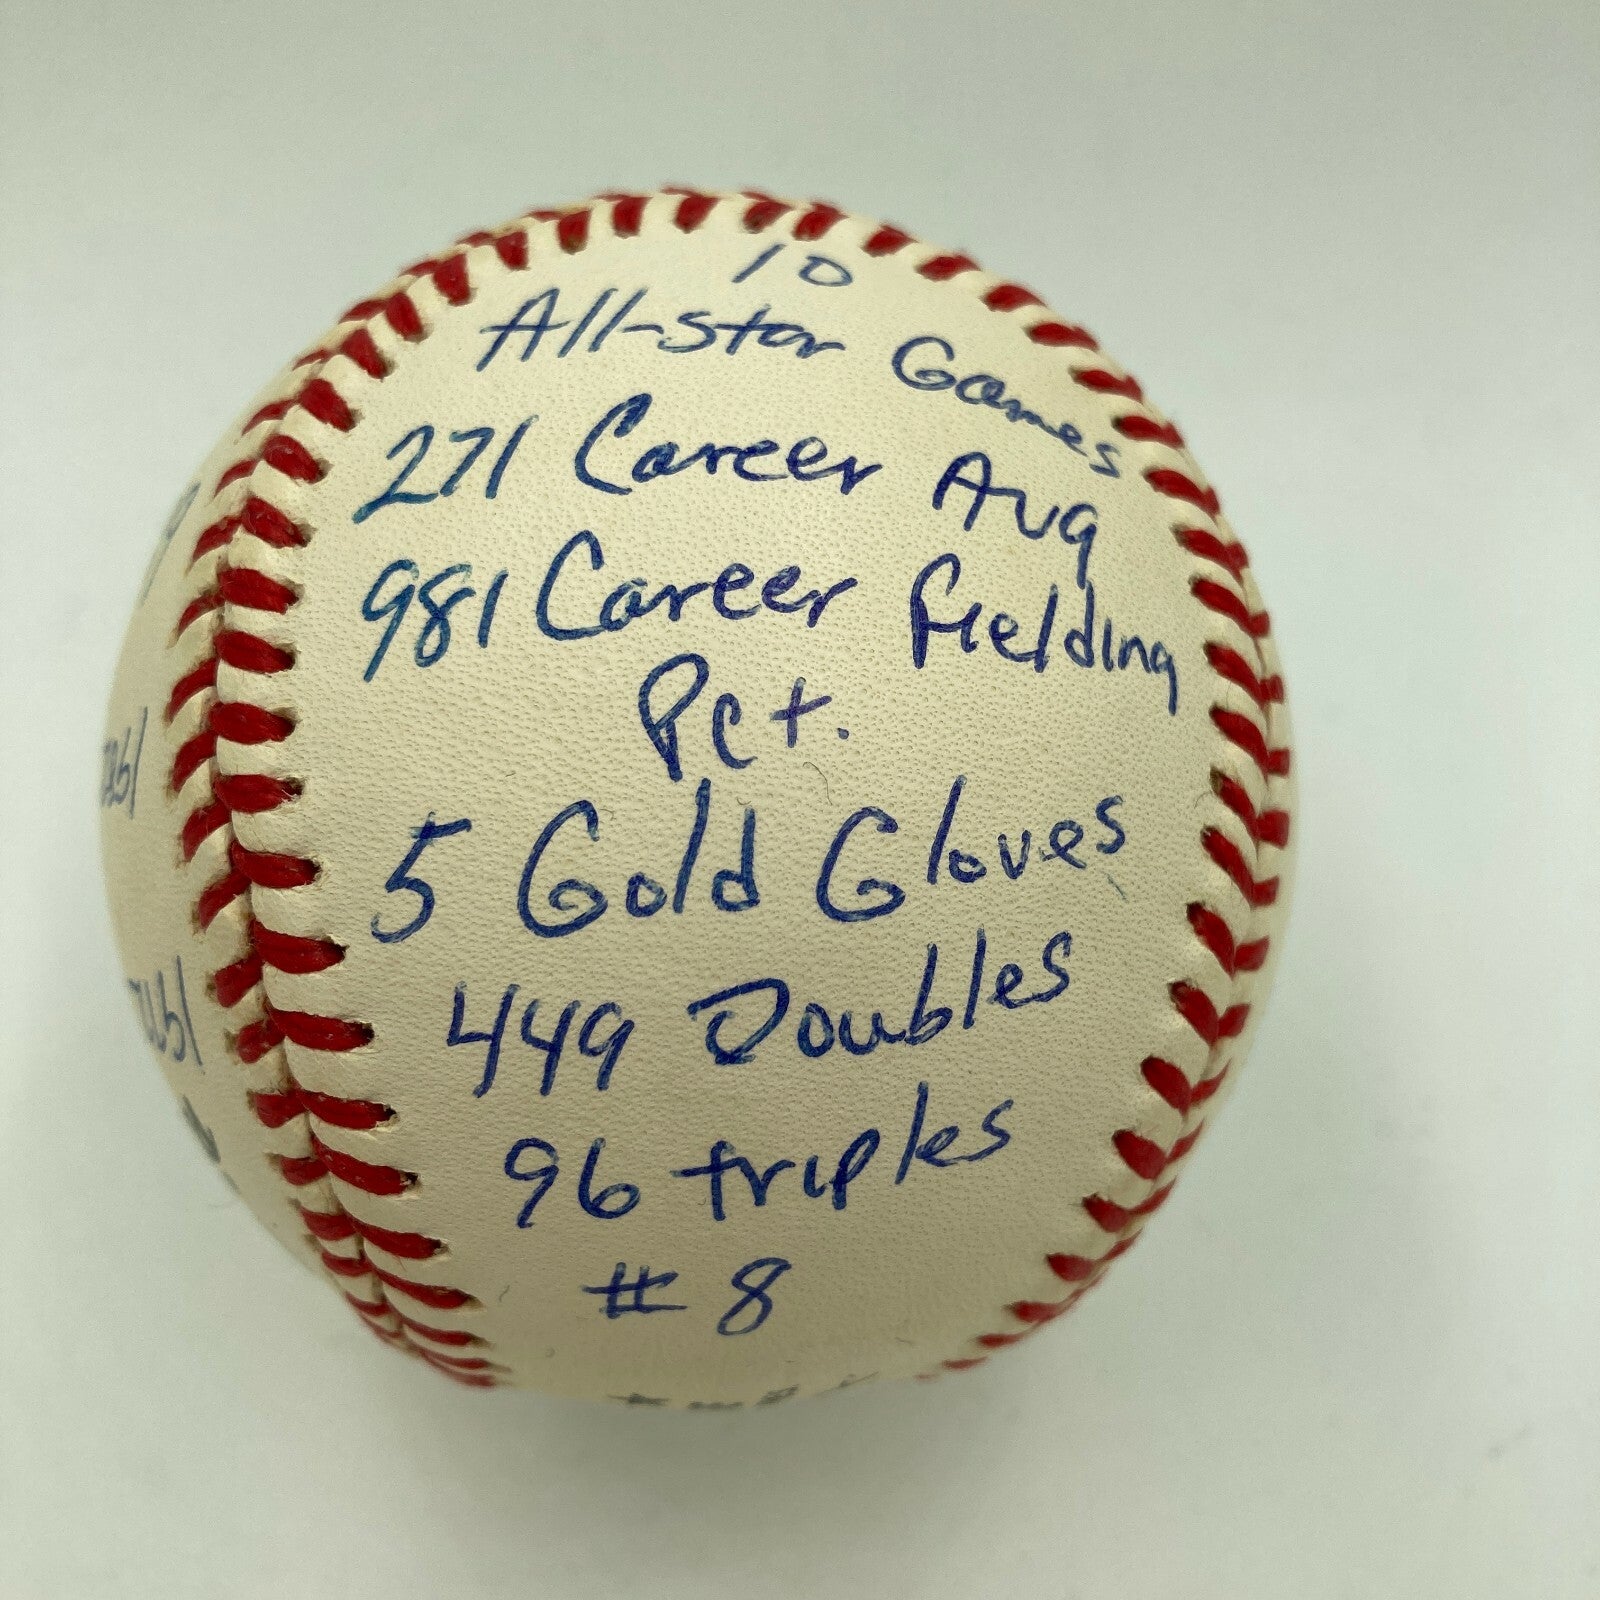 10
All-star Games
271 Career Avg
981 Career Fielding
Pct.
5 Gold Gloves
449 Doubles
96 triples
# 8